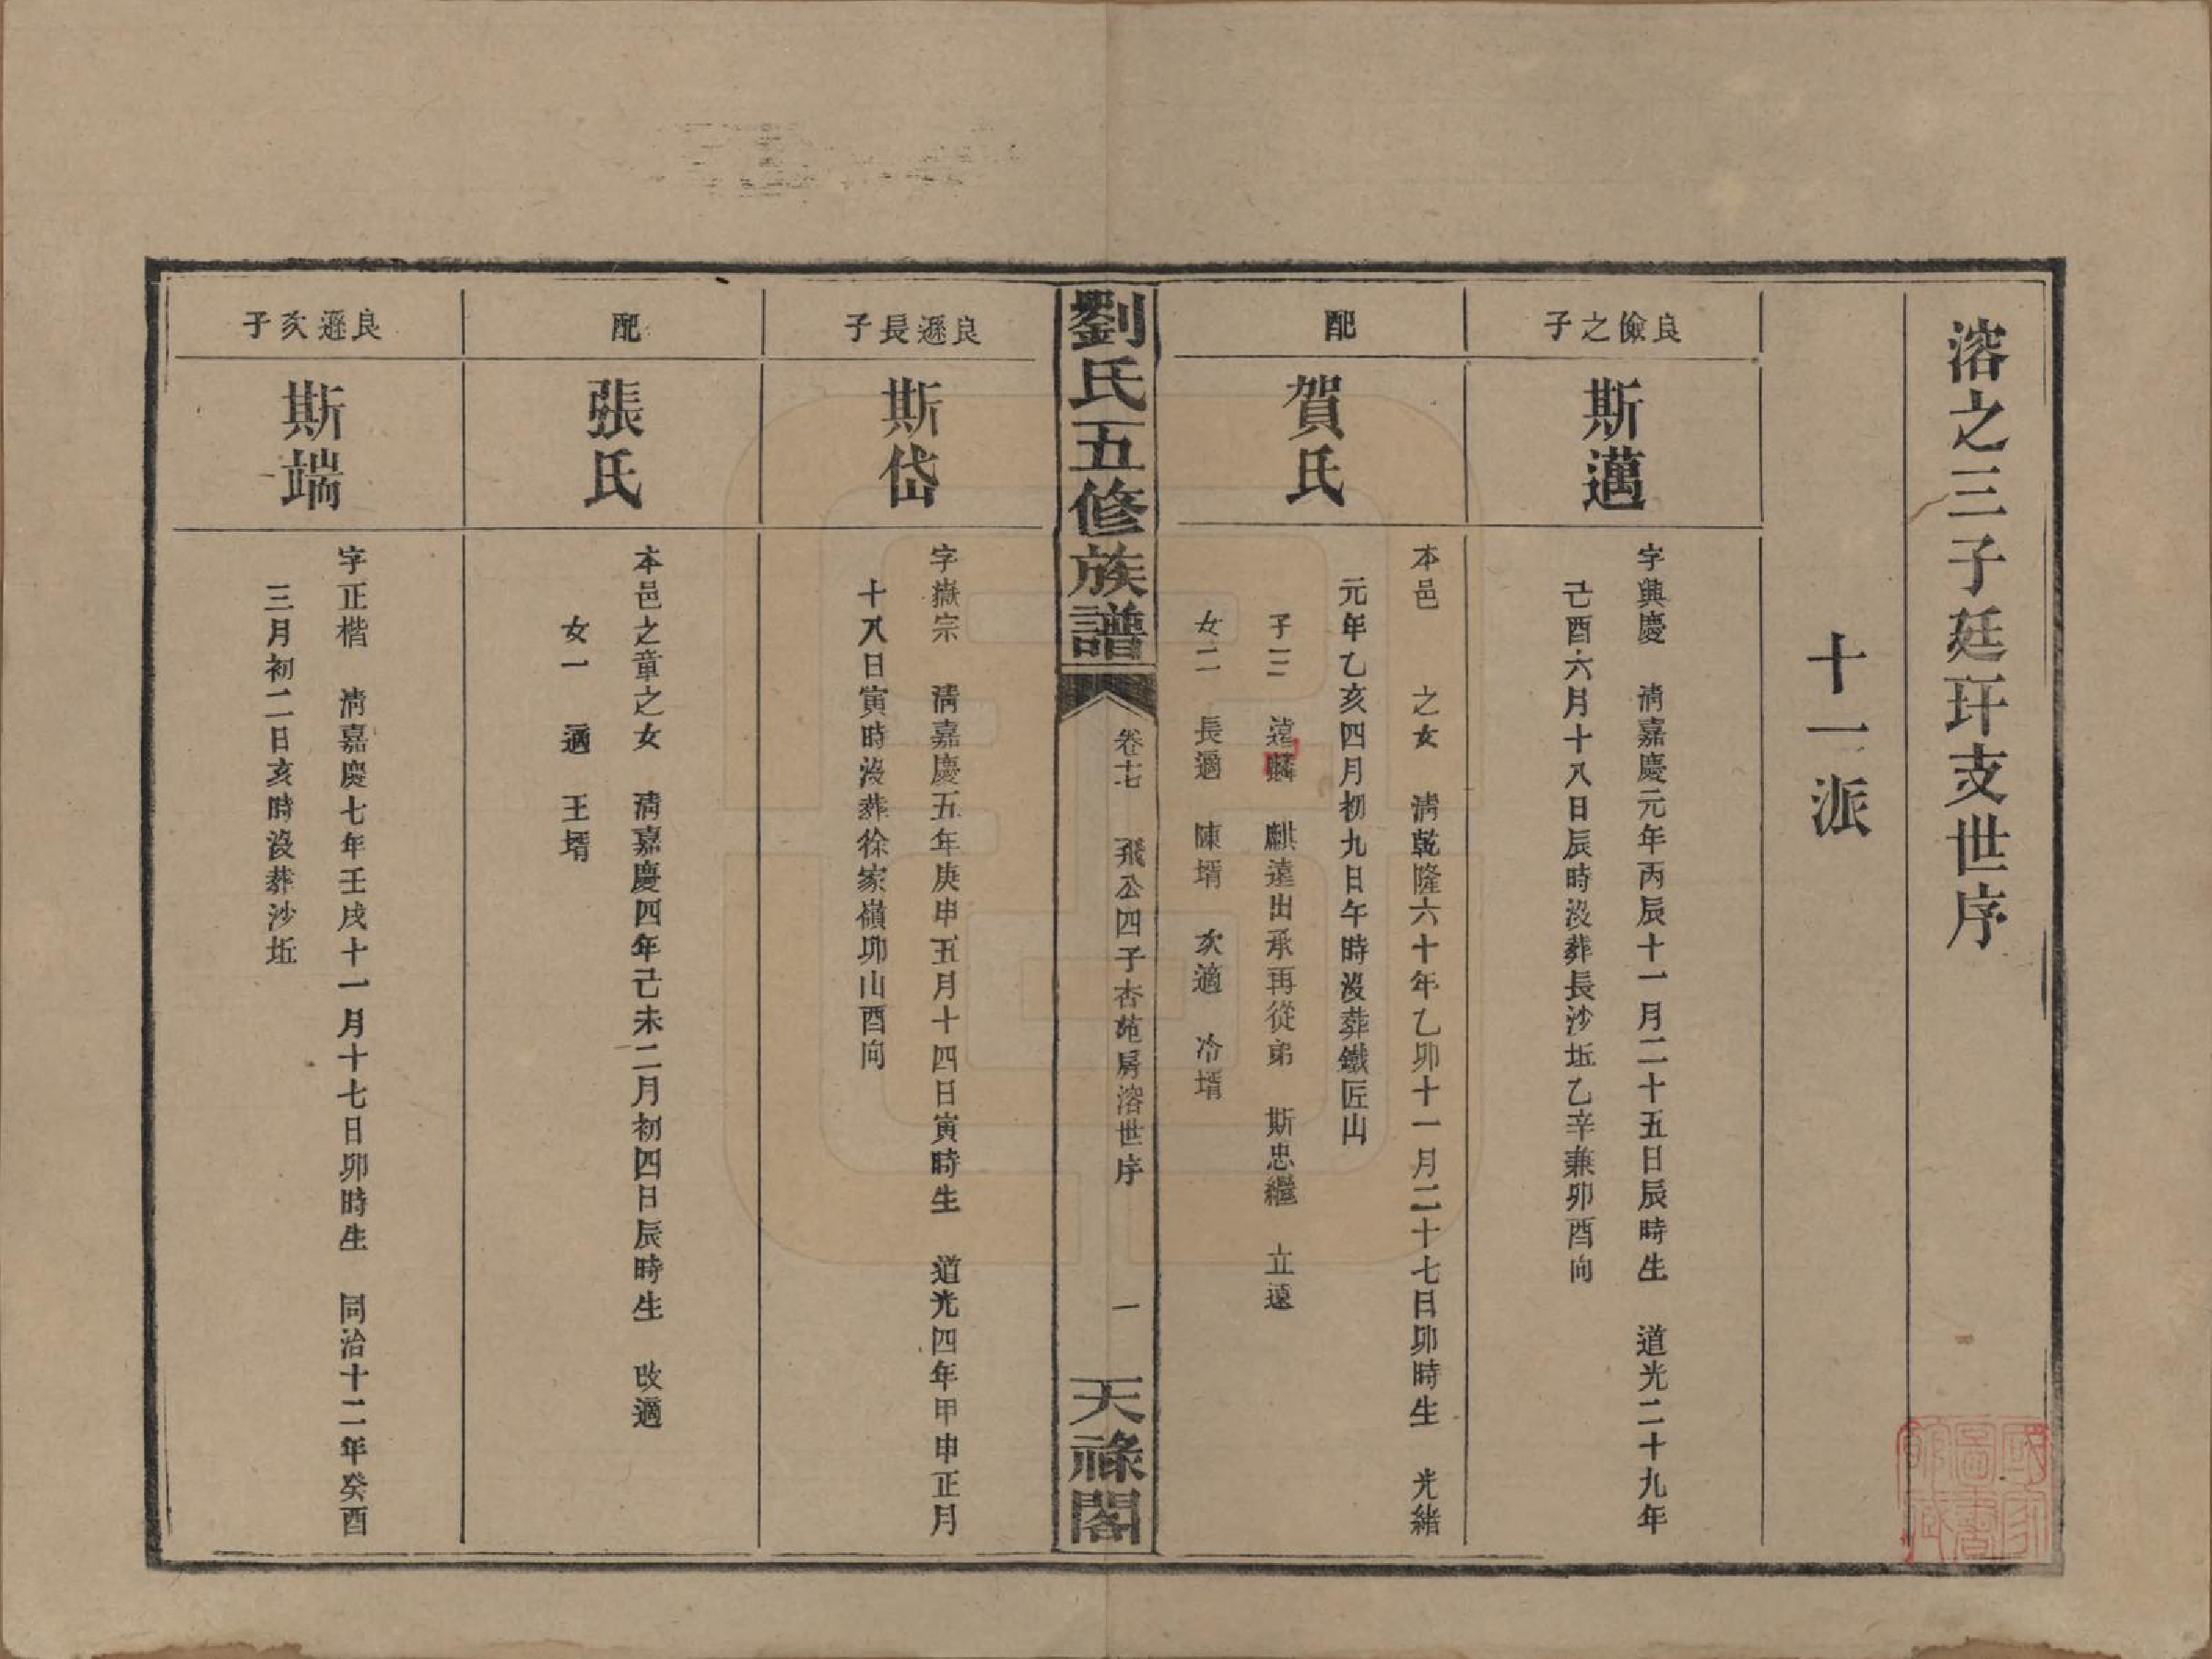 溶之三子廷玕支世序
十一派
良儉之子
斯邁
字興慶　清嘉慶元年丙辰十一月二十五日辰時生　道光二十九年
己酉六月十八日辰時沒葬長沙坵乙辛兼卯酉向
配
賀氏
本邑　之女　清乾隆六十年乙卯十一月二十七日卯時生　光緒
元年乙亥四月初九日午時沒葬鐵匠山
子三　遠麟　麒遠出承再從弟　斯忠繼　立遠
女二　長適　陳壻　次適　冷壻
劉氏五修族譜
卷十七　飛公四子杏苑房溶世序　一
天祿閣
良遜長子
斯岱
字嶽宗　清嘉慶五年庚申五月十四日寅時生　道光四年甲申正月
十八日寅時沒葬徐家嶺卯山酉向
配
張氏
本邑之章之女　清嘉慶四年己未二月初四日辰時生　改適
女一　適　王壻
良遜次子
斯端
字正楷　清嘉慶七年壬戌十一月十七日卯時生　同治十二年癸酉
三月初二日亥時沒葬沙坵
國家圖書館藏